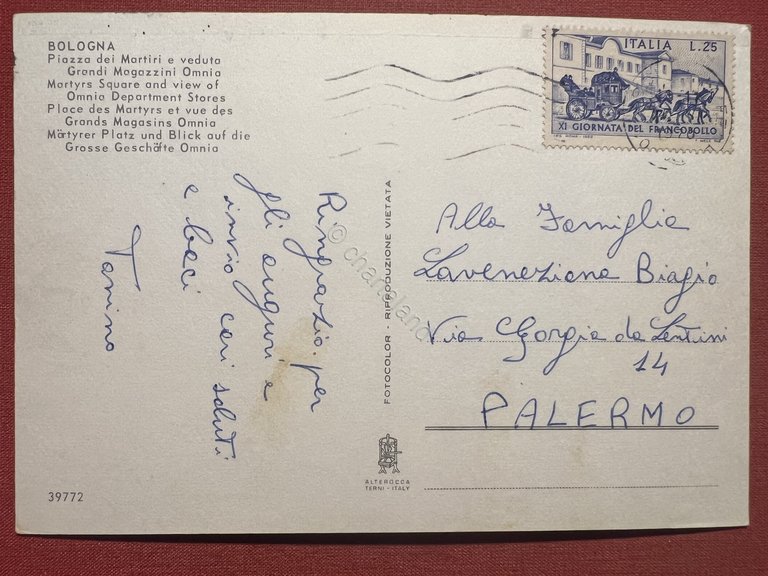 BOLOGNA
Piazza dei Martiri e veduta
Grandi Magazzini Omnia
Martyrs Square and view of
Omnia Department Stores
Place des Martyrs et vue des
Grands Magasins Omnia
Märtyrer Platz und Blick auf die
Grosse Geschäfte Omnia
ITALIA L.25
XI GIORNATA DEL FRANCOBOLLO
Ringrazio per
gli auguri e
invio cari saluti
e baci
Tanino
FOTOCOLOR - RIPRODUZIONE VIETATA
Alla Famiglia
Laveneziana Biagio
Via Gorgia da Lentini
14
PALERMO
ALTEROCCA
TERNI - ITALY
39772